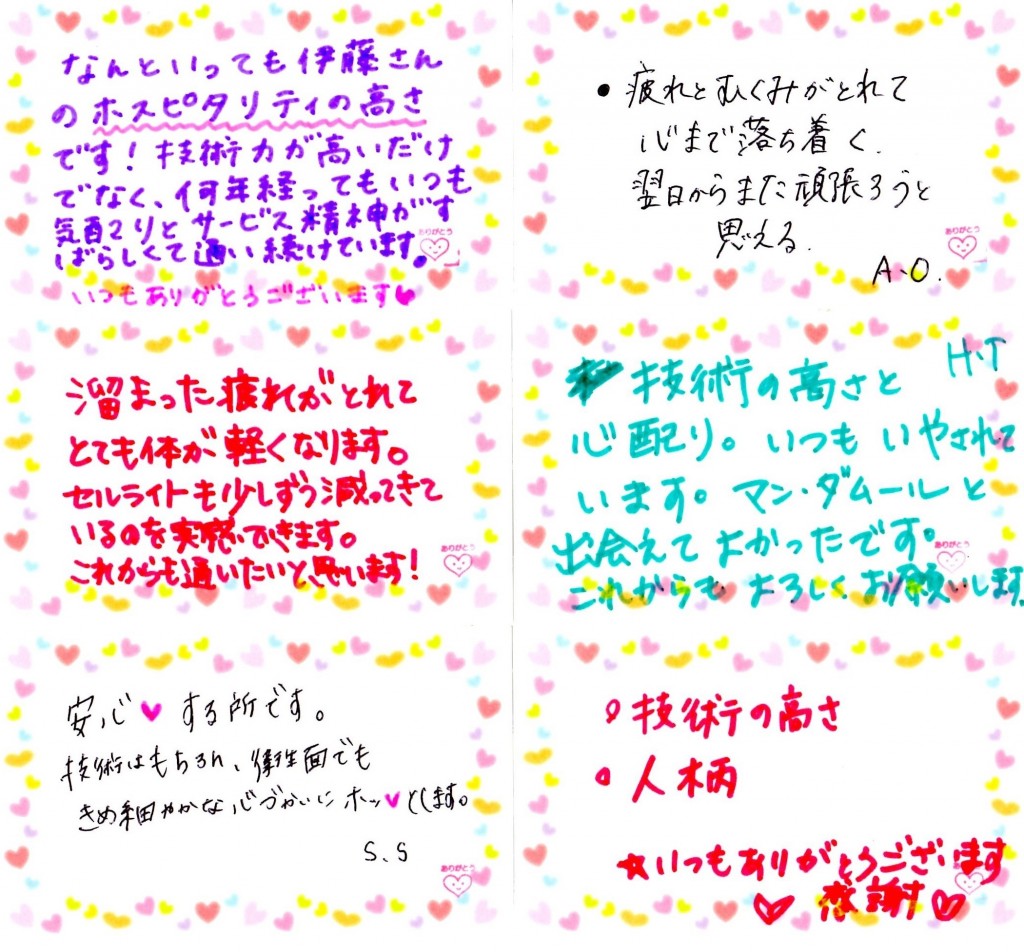 なんといっても伊藤さん
のホスピタリティの高さ
です！技術力が高いだけ
でなく、何年経ってもいつも
気配りとサービス精神がす
ばらしくて通い続けています。
ありがとう
いつもありがとうございます♥
• 疲れとむくみがとれて
心まで落ち着く.
翌日からまた頑張ろうと
思える.
ありがとう
A.O.
溜まった疲れがとれて
とても体が軽くなります。
セルライトも少しずつ減ってきて
いるのを実感できます。
これからも通いたいと思います！
ありがとう
H.T
技術の高さと
心配り。いつもいやされて
います。マン・ダムールと
出会えてよかったです。
ありがとう
これからもよろしくお願いします。
安心♥する所です。
技術はもちろん、衛生面でも
きめ細やかな心づかいにホッ♥とします。
S.S
ありがとう
技術の高さ
人柄
☆いつもありがとうございます
ありがとう
♡感謝♡